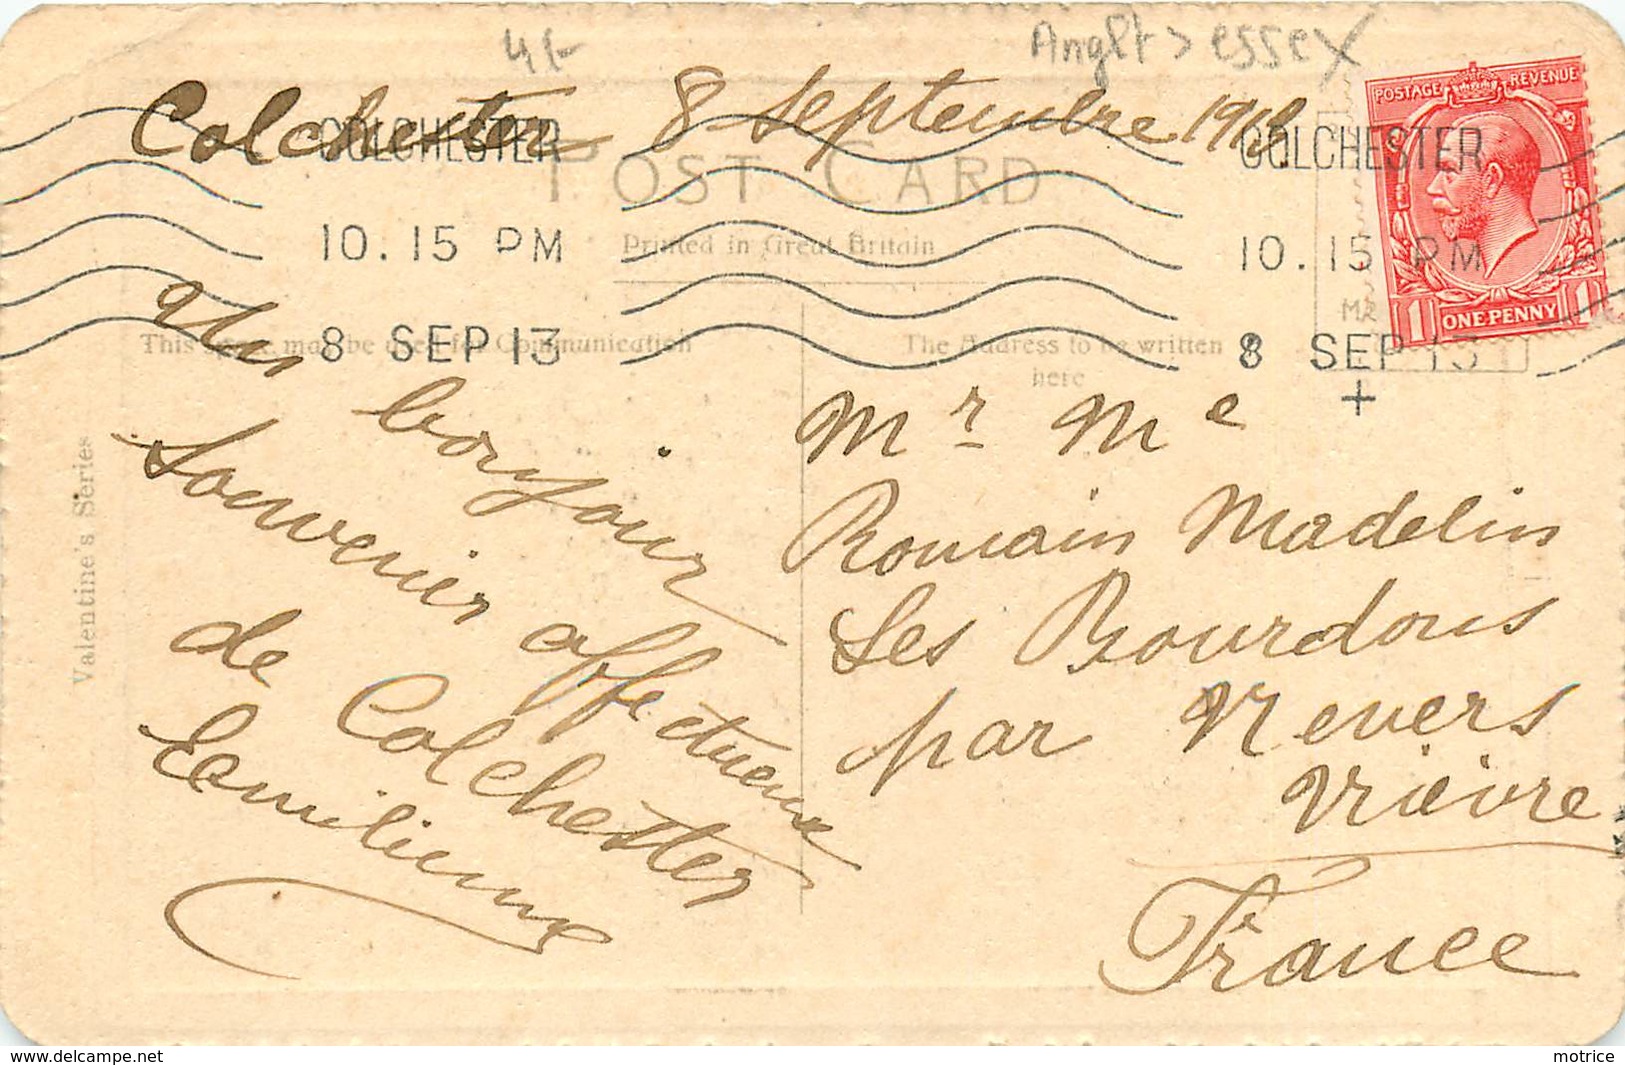 4/-
Anglt > essex
Colchester 8 Septembre 1913
POSTAGE REVENUE
ONE PENNY
1 1
COLCHESTER
10.15 PM
8 SEP 13
COLCHESTER
10.15 PM
8 SEP 13
+
POST CARD
Printed in Great Britain
This space may be used for Communication
The Address to be written
here
Valentine's Series
Un bonjour
Souvenir affectueux
de Colchester
Emilienne
Mr Me
Romain Madelin
Les Bourdons
par Nevers
Nièvre
France
delcampe.net
matrice